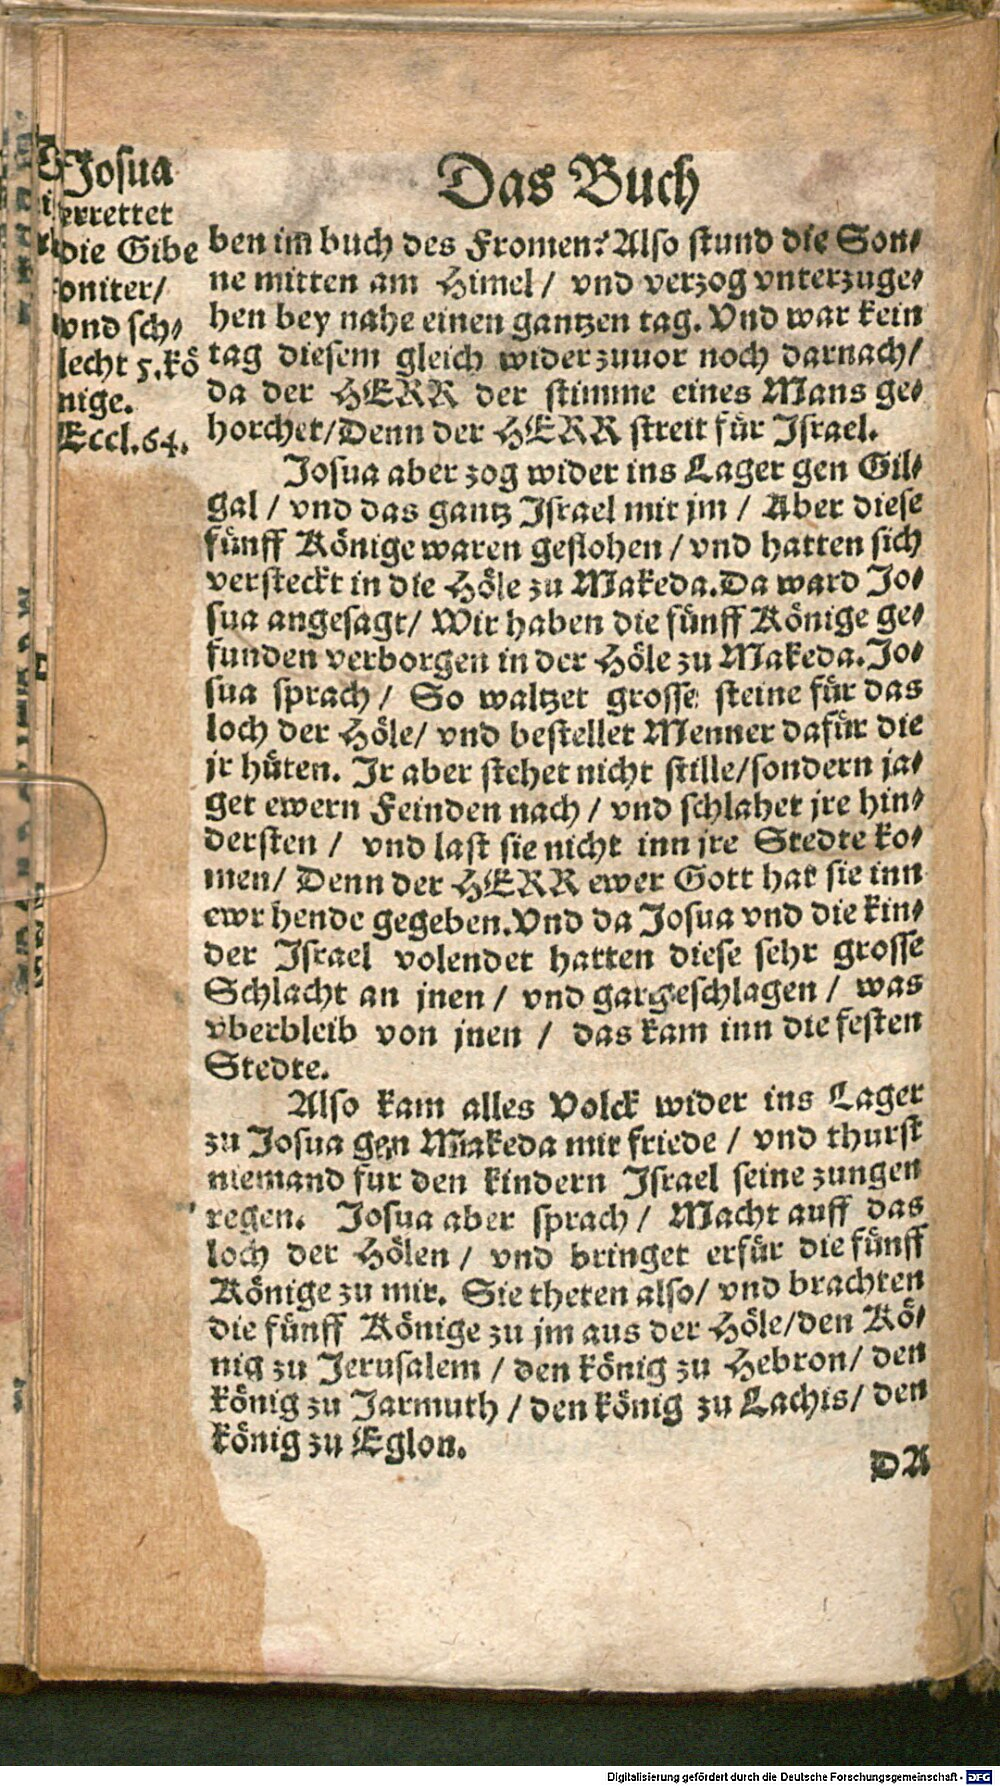 Das Buch
Josua
errettet
die Gibe
oniter/
vnd sch⸗
lecht 5.kö
nige.
Eccl.64.
ben im buch des Fromen? Also stund die Son⸗
ne mitten am Himel / vnd verzog vnterzuge⸗
hen bey nahe einen gantzen tag. Vnd war kein
tag diesem gleich wider zuuor noch darnach/
da der HERR der stimme eines Mans ge⸗
horchet/Denn der HERR streit für Israel.
Josua aber zog wider ins Lager gen Gil⸗
gal / vnd das gantz Israel mit jm / Aber diese
fünff Könige waren geflohen / vnd hatten sich
versteckt in die Höle zu Makeda. Da ward Jo⸗
sua angesagt/ Wir haben die fünff Könige ge⸗
funden verborgen in der Höle zu Makeda. Jo⸗
sua sprach / So waltzet grosse steine für das
loch der Höle/ vnd bestellet Menner dafür die
jr hüten. Ir aber stehet nicht stille/sondern ja⸗
get ewern Feinden nach / vnd schlahet jre hin⸗
dersten / vnd last sie nicht inn jre Stedte ko⸗
men/ Denn der HERR ewer Gott hat sie inn
ewr hende gegeben. Vnd da Josua vnd die kin⸗
der Israel volendet hatten diese sehr grosse
Schlacht an jnen / vnd gar geschlagen / was
vberbleib von jnen / das kam inn die festen
Stedte.
Also kam alles Volck wider ins Lager
zu Josua gen Makeda mit friede / vnd thurst
niemand fur den kindern Israel seine zungen
regen. Josua aber sprach / Macht auff das
loch der Hölen / vnd bringet erfür die fünff
Könige zu mir. Sie theten also/ vnd brachten
die fünff Könige zu jm aus der Höle/den Kö⸗
nig zu Jerusalem / den könig zu Hebron/ den
könig zu Jarmuth / den könig zu Lachis/ den
könig zu Eglon.
DA
Digitalisierung gefördert durch die Deutsche Forschungsgemeinschaft - DFG